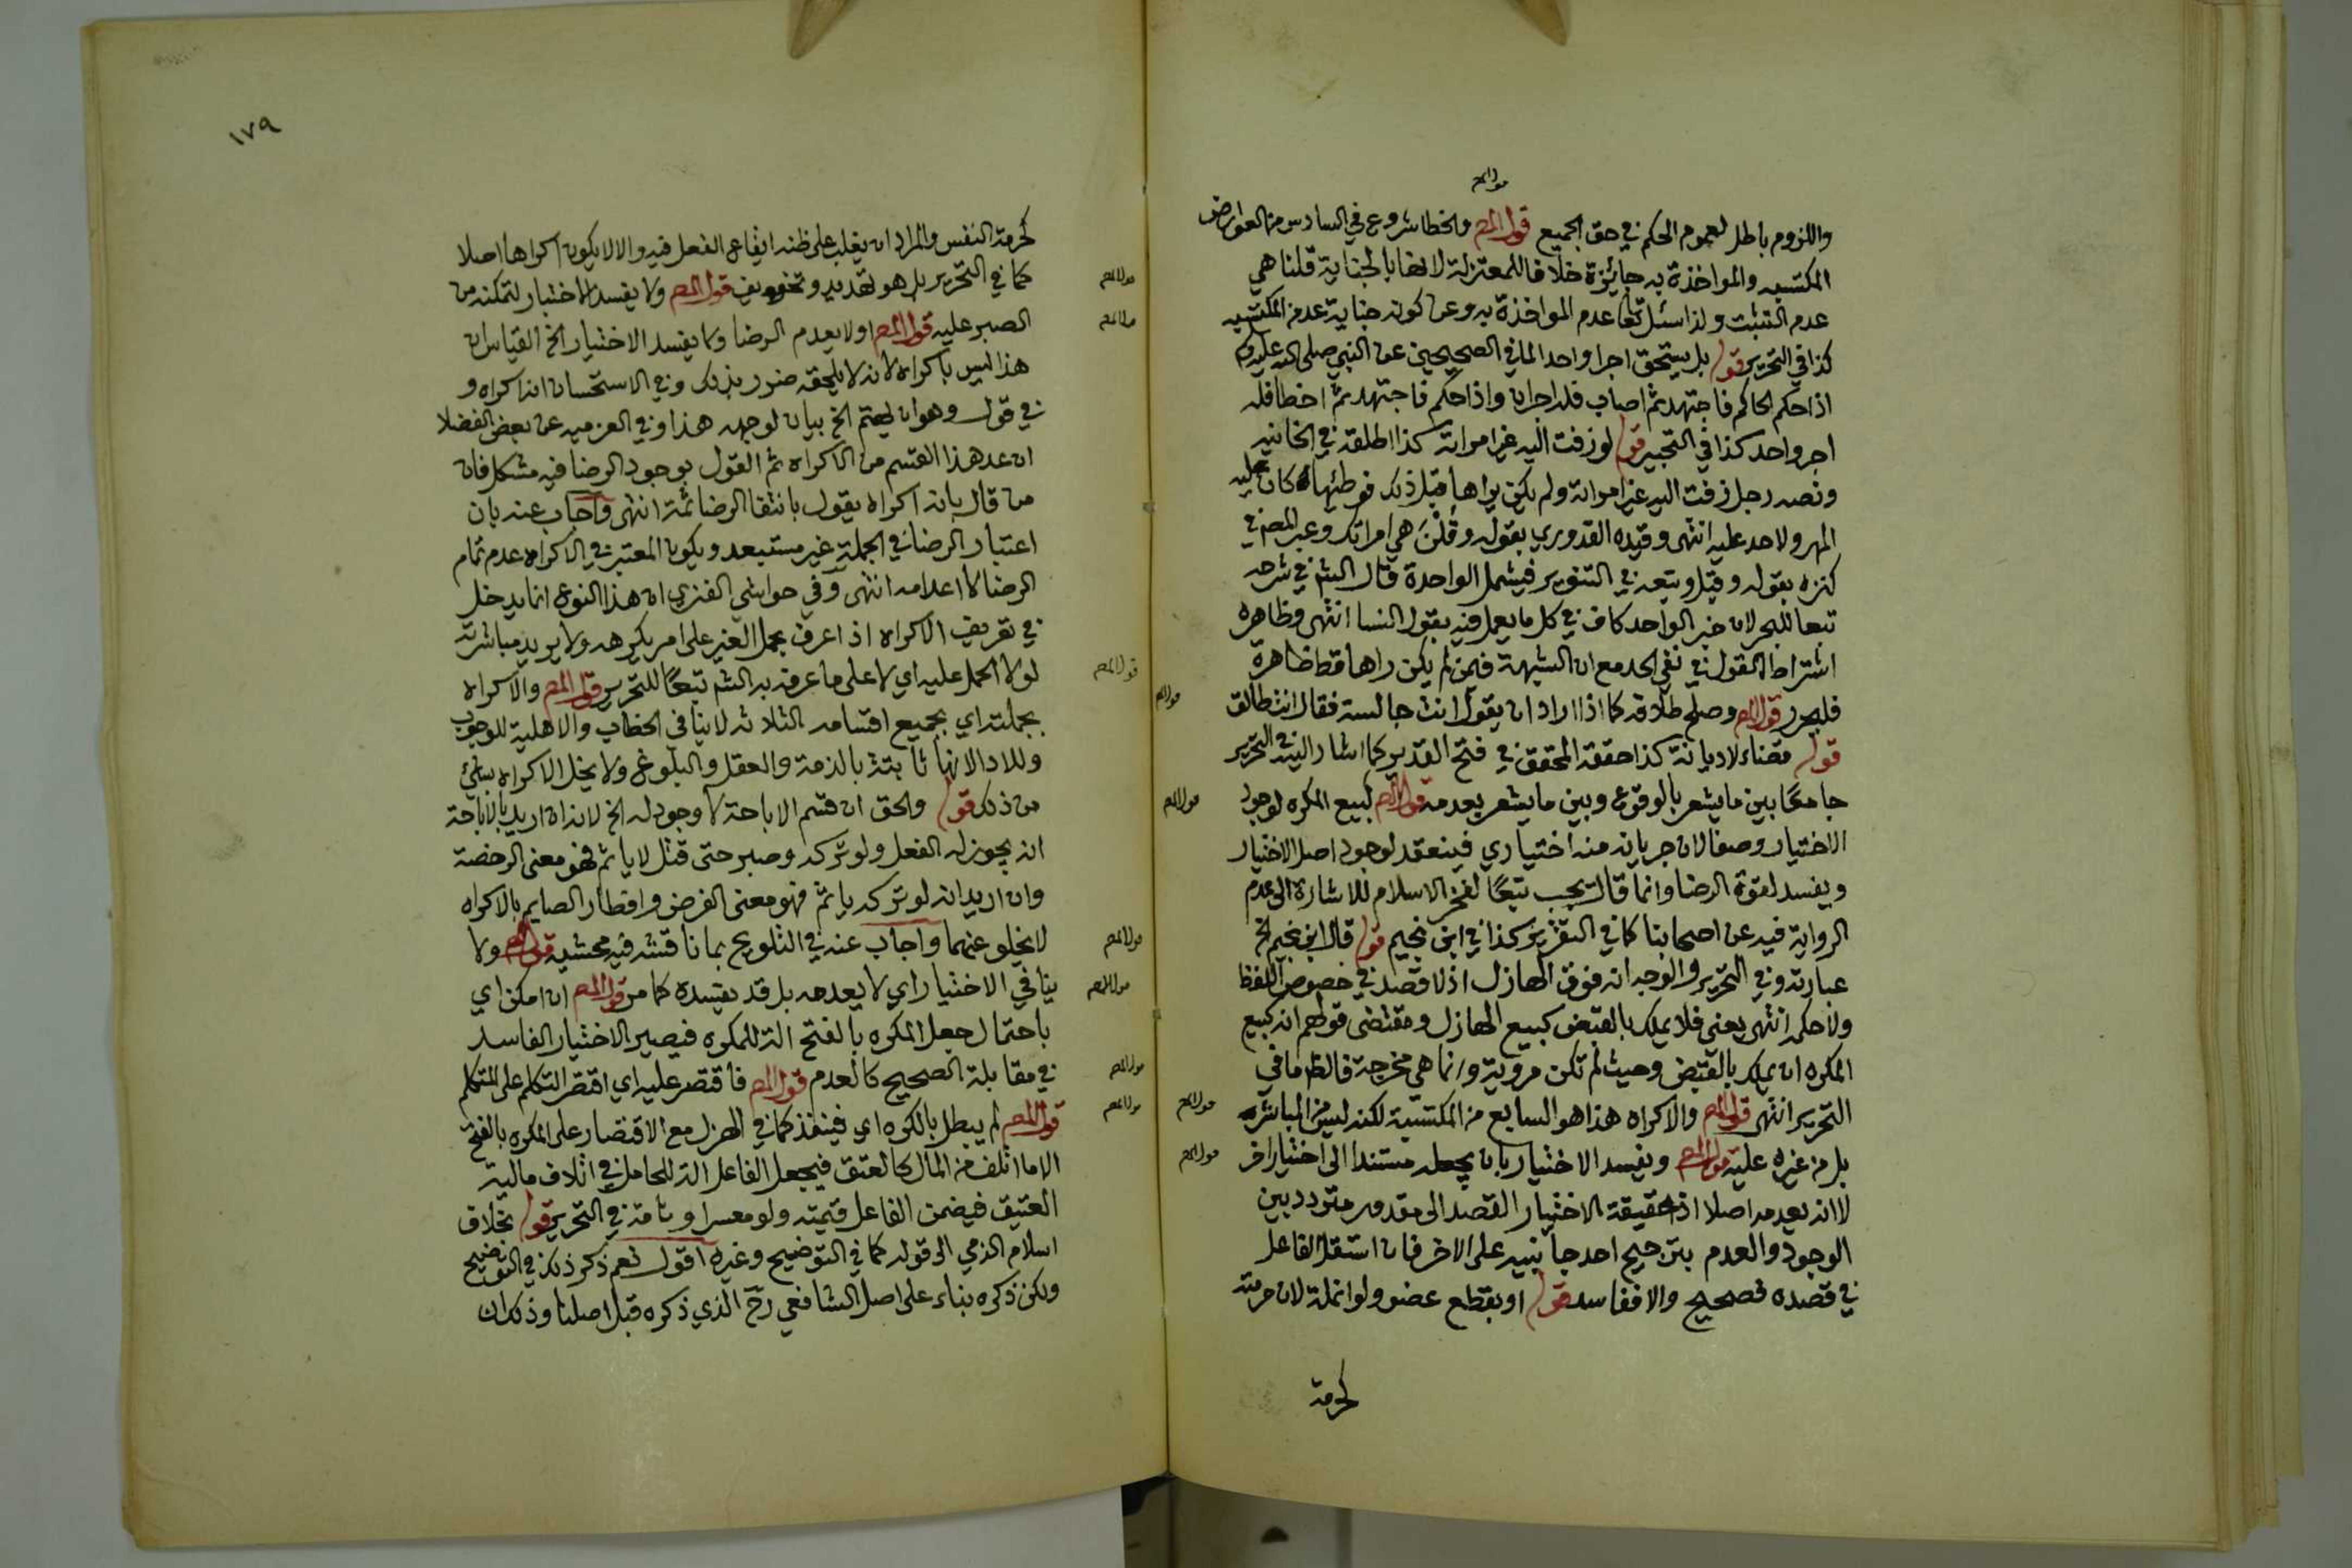 قول المص
واللزوم باطل لعموم الحكم في حق الجميع قول المص والخطا شروع في السادس من العوارض
المكتسبه والمواخذة به جائزة خلافا للمعتزلة لانها بالجناية قلنا هي
عدم التثبت ولذا سئل تعا عدم المواخذة به وعن كونه جناية عد من المكتسبه
كذا في التحرير قوله بل يستحق اجرا واحدا لما في الصحيحين عن النبي صلى الله عليه وسلم
اذا حكم الحاكم فاجتهد ثم اصاب فله اجران واذا حكم فاجتهد ثم اخطا فله
اجر واحد كذا في التحبير قوله لو زفت اليه غير امراته كذا اطلقه في الخانيه
ونصه رجل زفت اليه غير امراته ولم يكن يراها قبل ذلك فوطئها كان عليه
المهر ولا حد عليه انتهى وقيده القدوري بقوله وقلن هي امراتك وعبر المص في
كنزه بقوله وقيل وتبعه في التنوير فيشمل الواحدة قال الش في شرحه
تبعا للبحر لان خبر الواحد كاف في كل ما يعمل فيه بقول النسا انتهى وظاهره
اشتراط القول في نفي الحد مع ان الشبهة فيمن لم يكن راها قط ظاهرة
فليحرر قول المص وصلح طلاقه كما اذا اراد ان يقول انت جالسة فقال انت طالق
قوله قضاء لا ديانة كذا حققه المحقق في فتح القدير كما اشار اليه في التحرير
جامعا بين ما يشعر بالوقوع وبين ما يشعر بعدمه قول المص كبيع المكره لوجود
الاختيار وصفا لان جريانه منه اختياري فينعقد لوجود اصل الاختيار
ويفسد لفوة الرضا وانما قال يجب تبعا لفخر الاسلام للاشارة الى عدم
الرواية فيه عن اصحابنا كما في التقرير كذا في ابن نجيم قوله قال ابن نجيم الخ
عبارته وفي التحرير والوجه انه فوق الهازل اذ لا قصد في خصوص اللفظ
ولا حكمه انتهى يعني فلا يملك بالقبض كبيع الهازل ومقتضى قولهم انه كبيع
المكره ان يملك بالقبض وحيث لم تكن مروية وانما هي مخرجة فالظ ما في
التحرير انتهى قول المص والاكراه هذا هو السابع من المكتسبة لكنه ليس من المباشر
بل من غيره عليه قول المص ويفسد الاختيار بان يجعله مستندا الى اختيار اخر
لا انه يعدمه اصلا اذ حقيقة الاختيار القصد الى مقدور متردد بين
الوجود والعدم بترجيح احد جانبيه على الاخر فان استقل الفاعل
في قصده فصحيح والا ففاسد قوله او بقطع عضو ولو انملة لان حرمته
كحرمة
١٧٩
كحرمة النفس والمراد ان يغلب على ظنه ايقاع الفعل فيه والا لا يكون اكراها اصلا
كما في التحرير بل هو تهديد وتخويف قول المص ولا يفسد الاختيار لتمكنه من
الصبر عليه قول المص او لا يعدم الرضا ولا يفسد الاختيار الخ القياس ان
هذا ليس باكراه لانه لا يلحقه ضرر بذلك وفي الاستحسان انه اكراه و
في قوله وهو ان يهتم الخ بيان لوجهه هذا وفي العزميه عن بعض الفضلا
ان عد هذا القسم من الاكراه ثم القول بوجود الرضا فيه مشكل فان
من قال بانه اكراه يقول بانتفا الرضا ثمة انتهى واجاب عنه بان
اعتبار الرضا في الجملة غير مستبعد ويكون المعتبر في الاكراه عدم تمام
الرضا لا اعدامه انتهى وفي حواشي الفنري ان هذا النوع انما يدخل
في تعريف الاكراه اذا عرف بحمل الغير على امر يكرهه ولا يريد مباشرته
لولا الحمل عليه اي لا على ما عرفه به الش تبعا للتحرير قول المص والاكراه
بجملته اي بجميع اقسامه الثلاثه لا ينافي الخطاب والاهلية للوجوب
وللادا لانها ثابتة بالذمة والعقل والبلوغ ولا يخل الاكراه بشئ
من ذلك قوله والحق ان قسم الاباحة لا وجود له الخ لانه ان اريد بالاباحة
انه يجوز له الفعل ولو تركه وصبر حتى قتل لا ياثم فهو معنى الرخصة
وان اريد انه لو تركه ياثم فهو معنى الفرض وافطار الصايم بالاكراه
لا يخلو عنهما واجاب عنه في التلويح بما ناقشه فيه محشيه قول المص ولا
ينافي الاختيار اي لا يعدمه بل قد يفسده كما مر قول المص ان امكن اي
باحتمال جعل المكره بالفتح الة للمكره فيصير الاختيار الفاسد
في مقابلة الصحيح كالعدم قول المص فاقتصر عليه اي اقتصر التكلم على المتكلم
قول المص لم يبطل بالكره اي فينفذ كما في الهزل مع الاقتصار على المكره بالفتح
الا ما اتلف من المال كالعتق فيجعل الفاعل الة للحامل في اتلاف مالية
العتيق فيضمن الفاعل قيمته ولو معسرا وتامه في التحرير قوله بخلاف
اسلام الذمي الى قوله كما في التوضيح وغيره اقول نعم ذكر ذلك في التوضيح
ولكن ذكره بناء على اصل الشافعي رح الذي ذكره قبل اصلنا وذلك ان